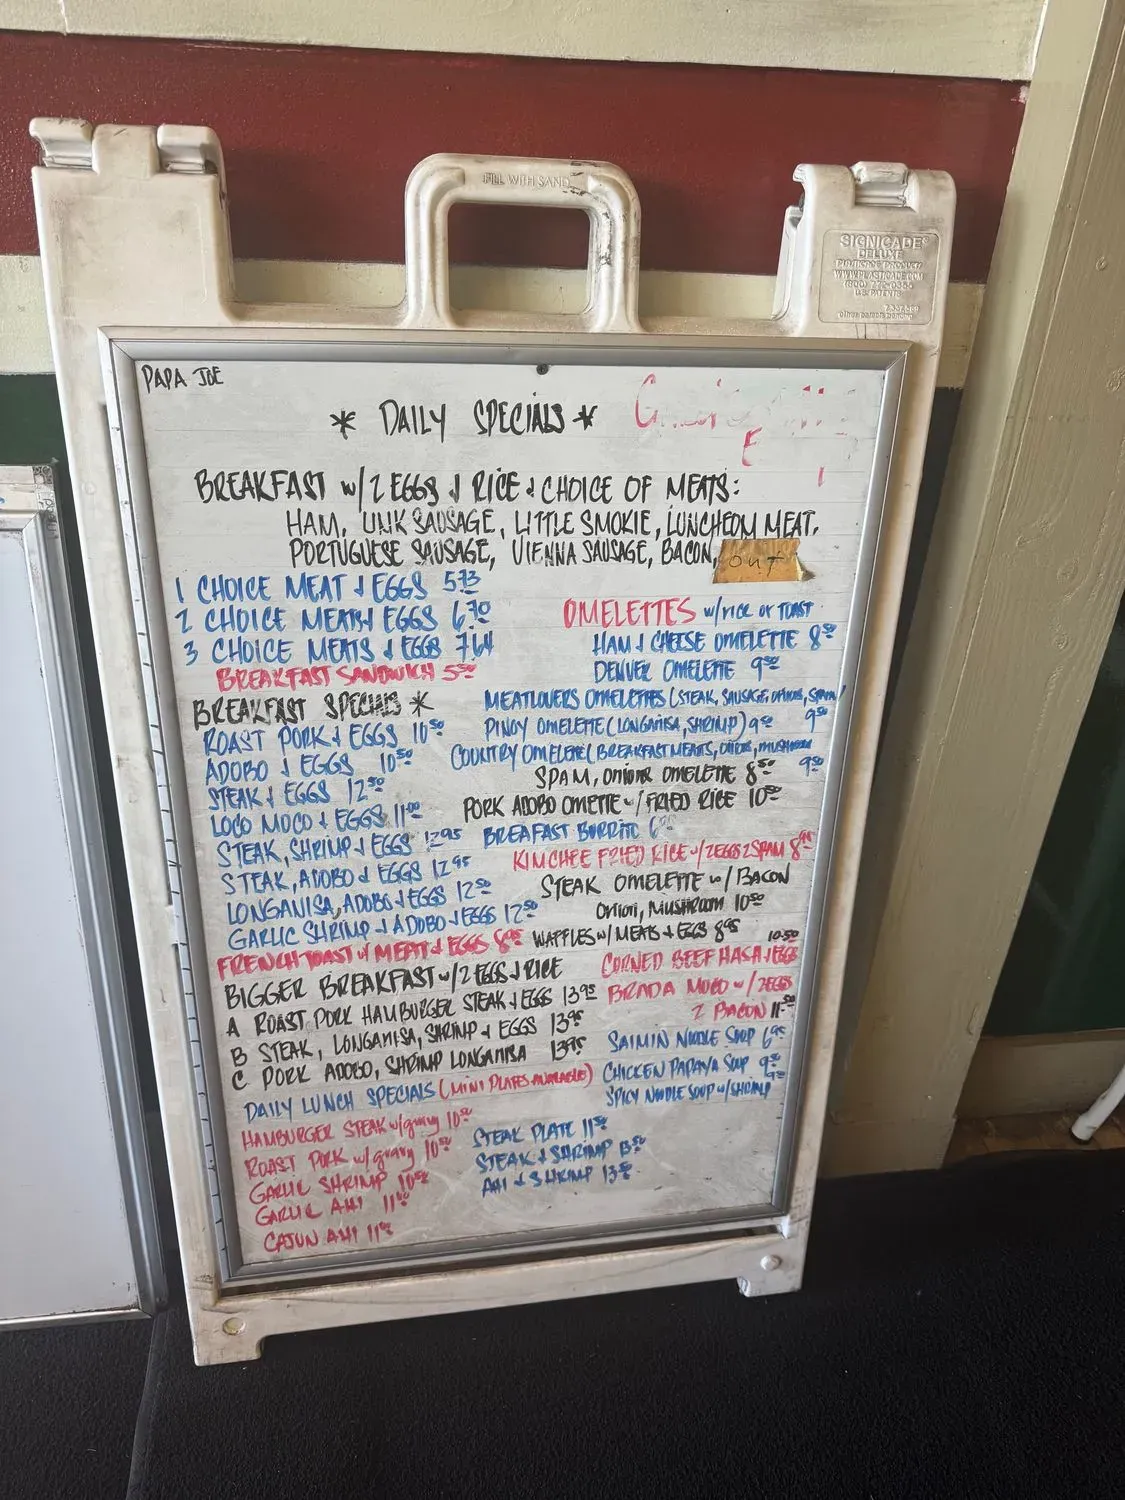 FILL WITH SAND
SIGNICADE®
DELUXE
WWW.PLASTICADE.COM
(800) 772-0355
U.S. PATENTS
other patents pending
PAPA JOE
* DAILY SPECIALS *
E
BREAKFAST w/2 EGGS & RICE & CHOICE OF MEATS:
HAM, LINK SAUSAGE, LITTLE SMOKIE, LUNCHEOM MEAT,
PORTUGUESE SAUSAGE, VIENNA SAUSAGE, BACON, out
1 CHOICE MEAT & EGGS 5.73
2 CHOICE MEATS & EGGS 6.70
3 CHOICE MEATS & EGGS 7.64
BREAKFAST SANDWICH 5.50
BREAKFAST SPECIALS *
ROAST PORK & EGGS 10.50
ADOBO & EGGS 10.50
STEAK & EGGS 12.50
LOCO MOCO & EGGS 11.00
STEAK, SHRIMP & EGGS 12.95
STEAK, ADOBO & EGGS 12.95
LONGANISA, ADOBO & EGGS 12.50
GARLIC SHRIMP & ADOBO & EGGS 12.50
FRENCH TOAST w/ MEAT & EGGS 8.95
BIGGER BREAKFAST w/2 EGGS & RICE
A ROAST PORK HAMBURGER STEAK & EGGS 13.95
B STEAK, LONGANISA, SHRIMP & EGGS 13.95
C PORK ADOBO, SHRIMP LONGANISA 13.95
DAILY LUNCH SPECIALS (MINI PLATES AVAILABLE)
HAMBURGER STEAK w/gravy 10.50
ROAST PORK w/gravy 10.50
GARLIC SHRIMP 10.50
GARLIC AHI 11.00
CAJUN AHI 11.00
OMELETTES w/RICE OR TOAST
HAM & CHEESE OMELETTE 8.50
DENVER OMELETTE 9.50
MEATLOVERS OMELETTES (STEAK, SAUSAGE, ONIONS, SPAM)
9.50
PINOY OMELETTE (LONGANISA, SHRIMP) 9.50
COUNTRY OMELETTE (BREAKFAST MEATS, ONIONS, MUSHROOM
9.50
SPAM, ONIONS OMELETTE 8.50
PORK ADOBO OMETTE w/ FRIED RICE 10.50
BREAFAST BURRITO
KIMCHEE FRIED RICE w/2EGGS 2SPAM 8.95
STEAK OMELETTE w/ BACON
ONION, MUSHROOM 10.50
WAFFLES w/ MEATS & EGGS 8.95
10.50
CORNED BEEF HASH & EGGS
BRADA MOCO w/ 2EGGS
2 BACON 11.50
SAIMIN NOODLE SOUP 6.95
CHICKEN PAPAYA SOUP 9.50
SPICY NOODLE SOUP w/SHRIMP
STEAK PLATE 11.50
STEAK & SHRIMP 13.50
AHI & SHRIMP 13.50